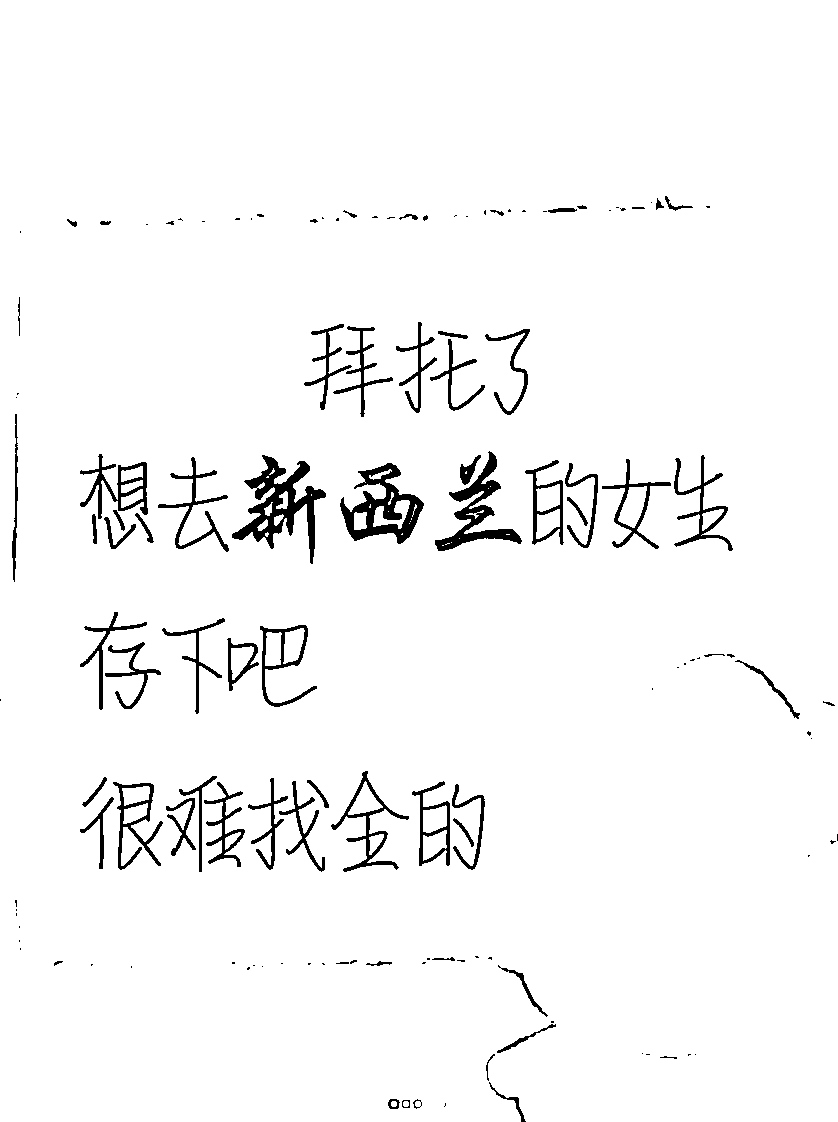 拜托了
想去新西兰的女生
存下吧
很难找全的